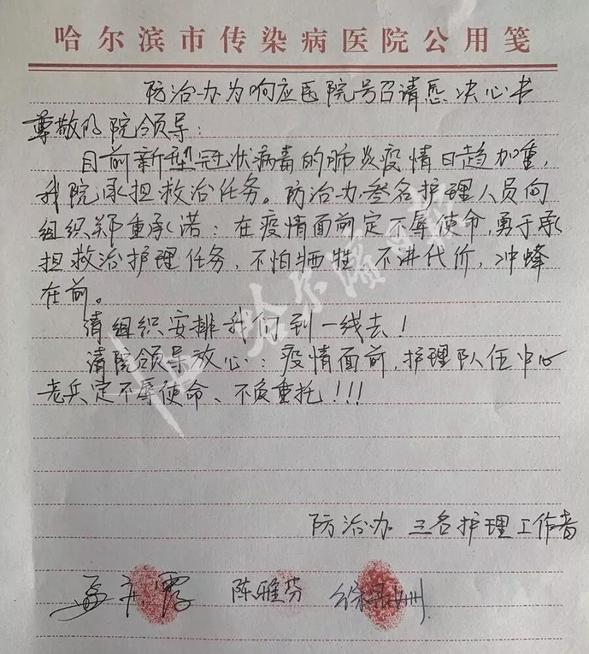 哈尔滨市传染病医院公用笺
防治办为响应医院号召请愿决心书
尊敬的院领导:
目前新型冠状病毒的肺炎疫情日趋加重,
我院承担救治任务。防治办叁名护理人员向
组织郑重承诺:在疫情面前定不辱使命,勇于承
担救治护理任务,不怕牺牲,不讲代价,冲蜂
在前。
请组织安排我们到一线去!
请院领导放心:疫情面前,护理队伍中心
老兵定不辱使命、不负重托!!!
防治办 三名护理工作者
陈雅芬
哈尔滨日报